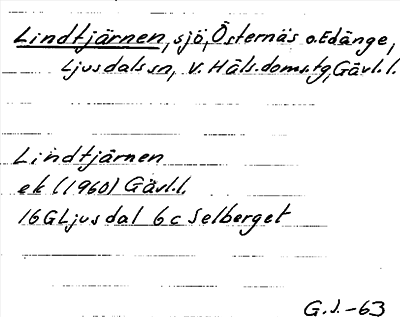 Lindtjärnen, sjö, Östernäs o. Edänge,
Ljusdals sn, V. Häls. doms. tg, Gävl. l.
Lindtjärnen
ek (1960) Gävl. l.
16G Ljusdal 6c Selberget
G.J.-63